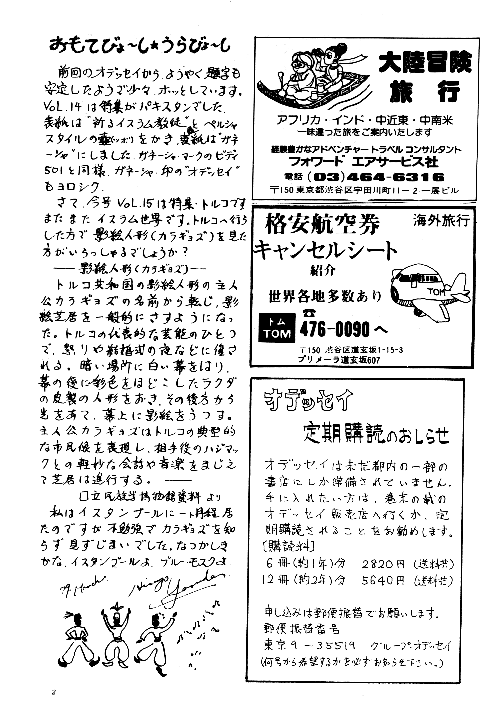 おもてびょ〜し★うらびょ〜し
前回のオデッセイから、ようやく題字も
安定したようで少々、ホッとしています。
VOL.14は特集がパキスタンでした。
表紙は"祈るイスラム教徒"とペルシャ
スタイルの をかき、裏表紙は"ガネ
ーシャ"にしました。ガネーシャ・マークのビディ
501と同様、ガネーシャ印の"オデッセイ"
もヨロシク。
さて、今号VOL.15は特集・トルコです
またまたイスラム世界です。トルコへ行ら
した方で影絵人形(カラギョズ)を見た
方がいらっしゃるでしょうか?
——影絵人形(カラギョズ)——
トルコ共和国の影絵人形の主人
公カラギョズの名前から転じ、影
絵芝居を一般的にさすようになっ
た。トルコの代表的な芸能のひとつ
で、祭りや 式の夜などに催さ
れる。暗い場所に白い幕をはり、
幕の後に彩色をほどこしたラクダ
の皮製の人形をおき、その後方から
光をあて、幕上に影絵をうつす。
主人公カラギョズはトルコの典型的
な市民像を表現し、相手役のハジワッ
クとの軽妙な会話や音楽をまじえ
て芝居は進行する。——
国立民族学博物館資料より
私はイスタンブールに一ヶ月程居
たのですが不勉強でカラギョズを知
らず見ずじまいでした。なつかしき
かな、イスタンブールよ、ブルーモスクよ
大陸冒険
旅行
アフリカ・インド・中近東・中南米
一味違った旅をご案内いたします
経験豊かなアドベンチャートラベルコンサルタント
フォワード エアサービス社
電話(03)464-6316
〒150 東京都渋谷区宇田川町11-2 一展ビル
格安航空券
海外旅行
キャンセルシート
紹介
世界各地多数あり
TOM
トム
TOM
☎476-0090へ
〒150 渋谷区道玄坂1-15-3
プリメーラ道玄坂607
オデッセイ
定期購読のおしらせ
オデッセイはまだ都内の一部の
書店にしか常備されていません。
手に入れたい方は、巻末の
オデッセイ販売店へ行くか、定
期購読されることをお勧めします。
[購読料]
6冊(約1年)分 2820円(送料共)
12冊(約2年)分 5640円(送料共)
申し込みは郵便振替でお願いします。
郵便振替番号
東京9-35519 グループオデッセイ
(何号から希望するかを必ずお知らせ下さい。)